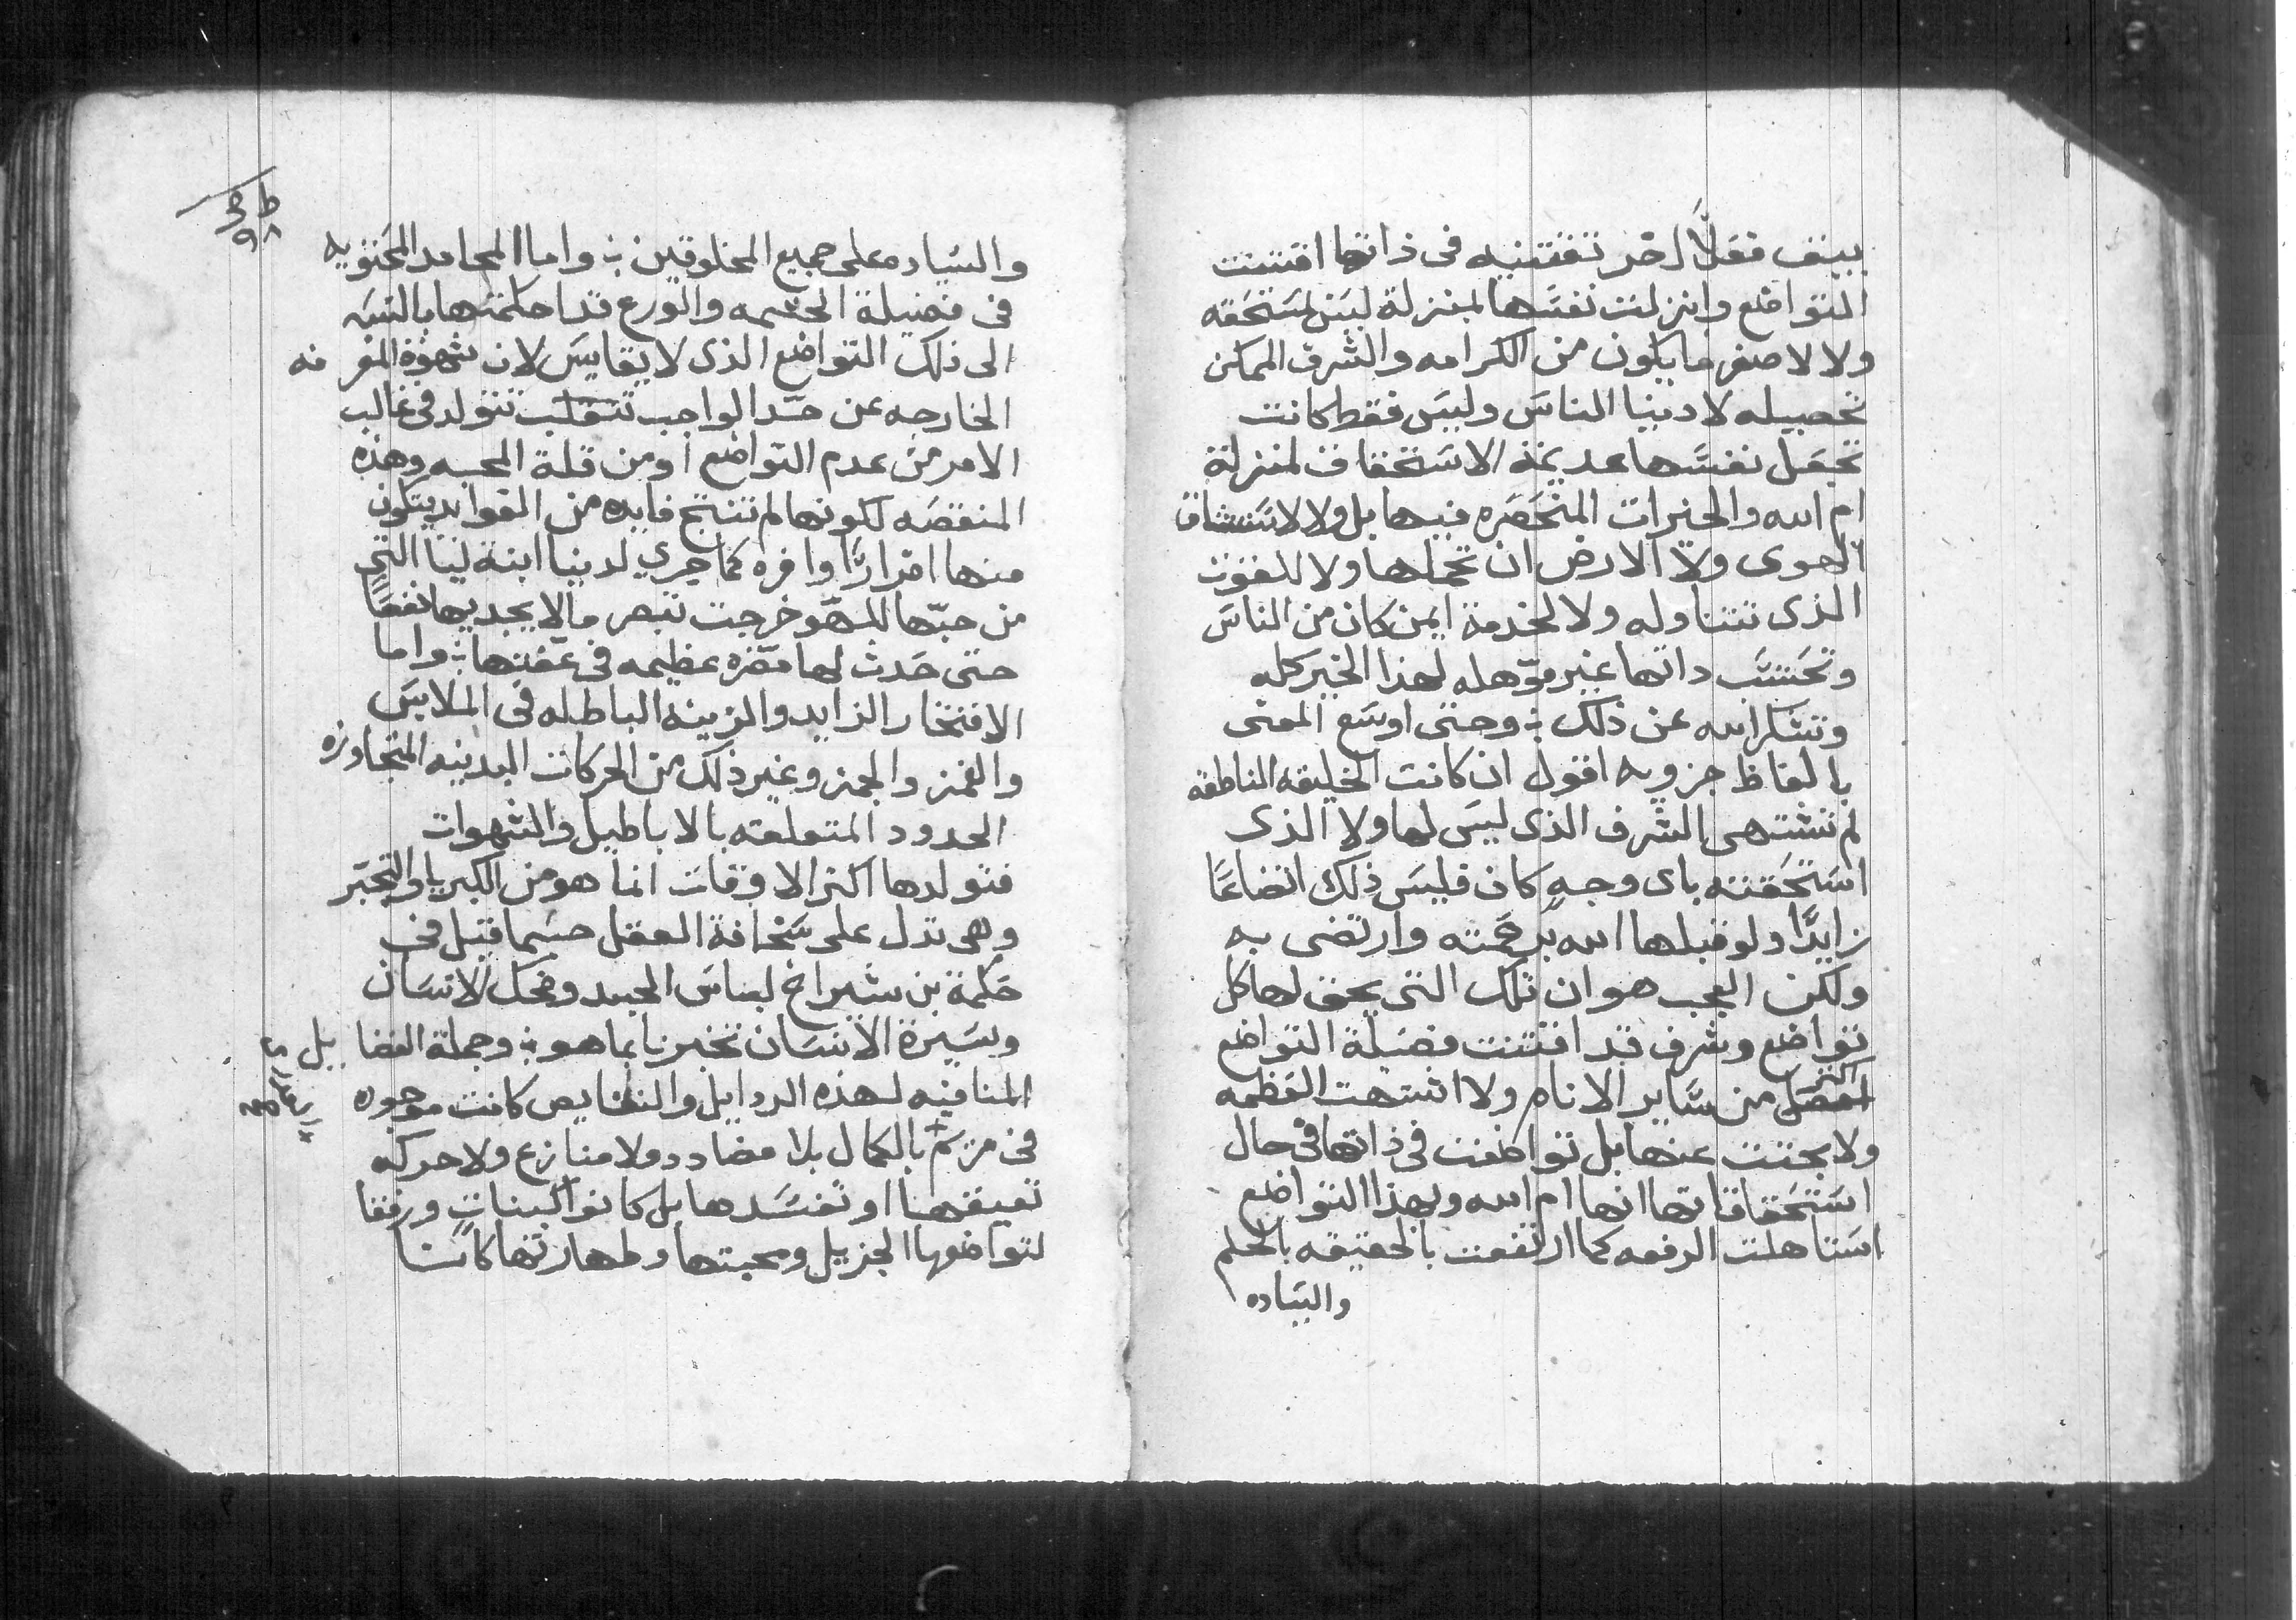 بينف فعلًا اخر تقتنيه فى ذاتها اقتنت
التواضع وانزلت نفسها لمنزله ليس لمستحقه
ولا لاصغر ما يكون من الكرامه والشرف الممكن
تحصيله لادنيا الناس وليس فقط كانت
تجعل نفسها عديمة الاستحقاق لمنزلة
ام الله والخيرات المنحصره فيها بل ولا لاستنشاق
الهوى ولا الارض ان تحملها ولا للقوت
الذى تتناوله ولا لخدمة ايمن كان من الناس
وتحتسب داتها غير موهله لهذا الخير كله
وتشكر الله عن ذلك ؛ وحتى اوسع المعنى
بالفاظ جزويه اقول ان كانت الخليقه الناطقه
لم تشتهى الشرف الذى ليس لها ولا الذى
استحقته باى وجهٍ كان فليس ذلك اتضاعًا
زايدًا ولو قبلها الله برحمته وارتضى به
ولكن العجب هو ان تلك التى يحق لها كل
تواضع وشرف قد اقتنت فضيلة التواضع
اكثر
افضل من ساير الانام ولا اشتهت العظمه
ولا بحثت عنها بل تواضعت فى ذاتها فى حال
استحقاقاتها انها ام الله وبهذا التواضع
استاهلت الرفعه كما ارتفعت بالحقيقه بالحلم
والسياده
والسياده على جميع المخلوقين ؛ واما المحامد المحتويه
فى فضيلة الحشمه والورع قد احكمتها بالنسبه
الى ذلك التواضع الذى لا يقايس لان شهوة المعرفه
الخارجه عن حد الواجب تتولد فى غالب
الامر من عدم التواضع او من قلة المحبه وهذه
المنقصه لكونها لم تنتج فايده من الفوايد يتكون
منها اضرارًا وافره كما جرى لدينا ابنة ليا التى
من حبها للهو خرجت تبصر ما لا يجديها نفعًا
حتى حدث لها مضره عظيمه فى عفتها ؛ واما
الافتخار الزايد والزينه الباطله فى الملابس
والغمز والجمز وغير ذلك من الحركات البدنيه المتجاوزه
الحدود المتعلقه بالاباطيل والشهوات
فتولدها اكثر الاوقات انما هو من الكبريا والتجبر
وهى تدل على سخافة العقل حسبما قيل فى
حكمة بن شيراخ لباس الجسد وضحك الانسان
وسيرة الانسان تخبرنا بما هو ؛ وجملة الفضايل
المنافيه لهذه الردايل والنقايص كانت موجوده
فى مريم بالكمال بلا مضادد ولا منازع ولا حركه
تعيقها او تفسدها بل كانوا كبنات ورفقا
لتواضعها الجزيل ومحبتها وطهارتها كانت